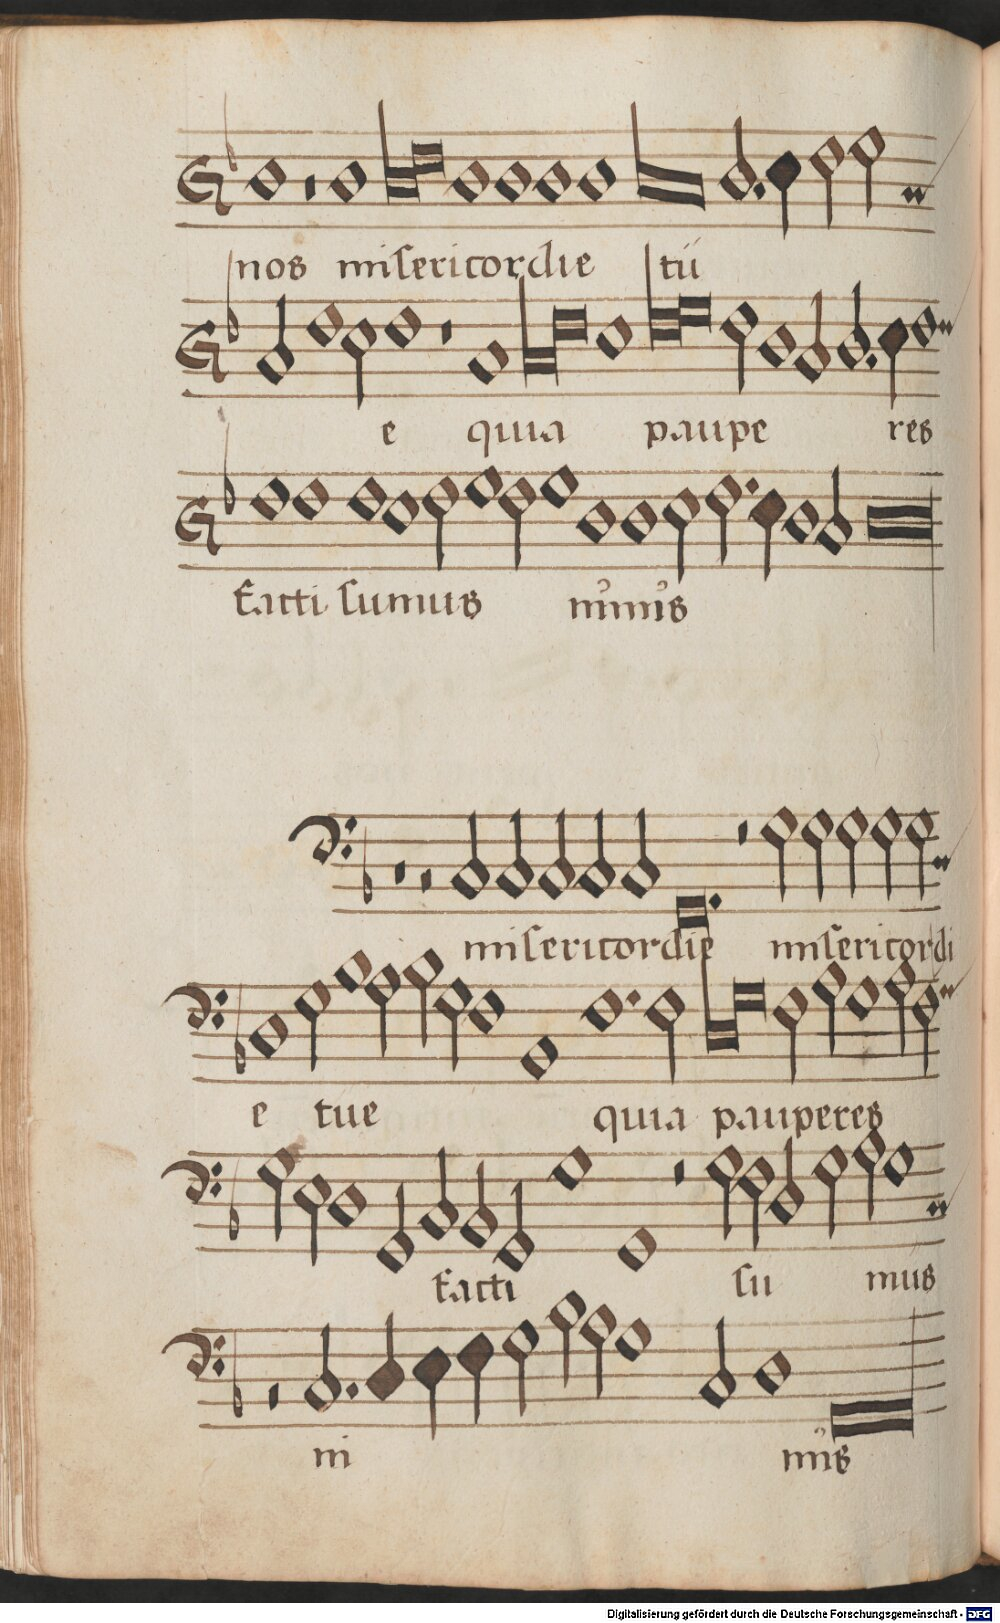 nos misericordie tu
e quia paupe res
facti sumus nimis
misericordie misericordi
e tue quia pauperes
facti su mus
ni mis
Digitalisierung gefördert durch die Deutsche Forschungsgemeinschaft - DFG